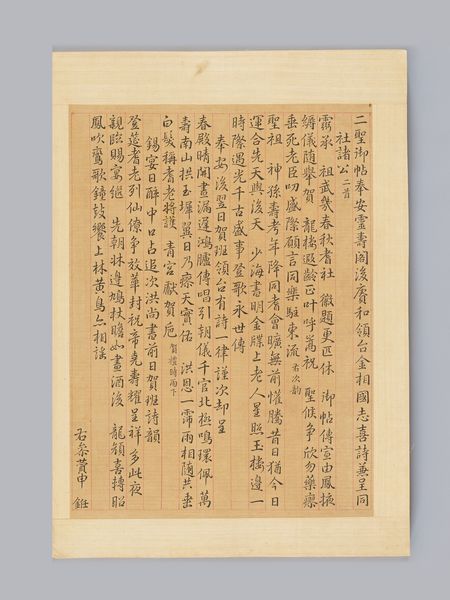 二聖御帖奉安靈壽閣後賡和領台金相國志喜詩兼呈同
社諸公 二首
靈承 祖武幾春秋耆社 徽題更匹休 御帖傳宣由鳳掖
縟儀随舉賀 龍樓遐齡正叶呼嵩祝 聖候争欣勿藥瘳
垂死老臣叨盛際願言同樂駐東流 右次韵
聖祖 神孫壽考年降同耆會曠無前懽騰昔日猶今日
運合先天與後天 少海書明金牒上老人星照玉樓邊一
時際遇光千古盛事登歌永世傳
奉安後翌日賀班領台有詩一律謹次却呈
春殿晴開畫漏遲鴻臚傳唱引朝儀千官北極鳴環佩萬
壽南山拱玉墀翼日乃瘳天實佑 洪恩一霈雨相隨共垂
白髮稱耆老將護 青宮獻賀卮 賀禮時雨下
錫宴日醉中口占追次洪尚書前日賀班詩韻
登筵耆老列仙僚争放華封祝帝堯壽耀呈祥多此夜
親臨賜宴繼 先朝牀邊鳩杖瞻如畫酒後 龍顔喜轉昭
鳳吹鸞歌鐘鼓饗上林黄鳥亦相謠
右參贊申 銋